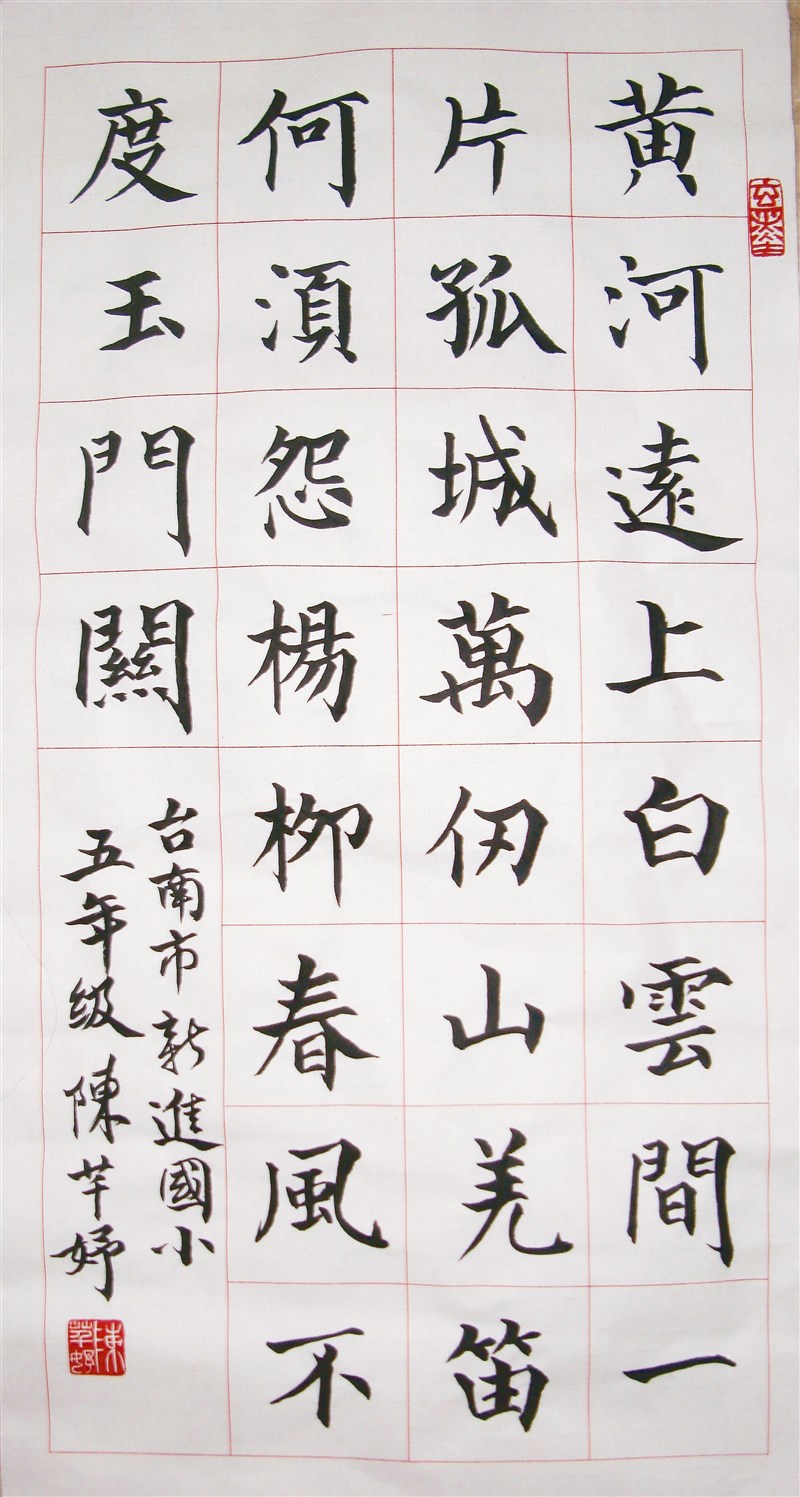 黄河遠上白雲間一
片孤城萬仞山羌笛
何湏怨楊柳春風不
度玉門關
台南市新進國小
五年級陳芊妤